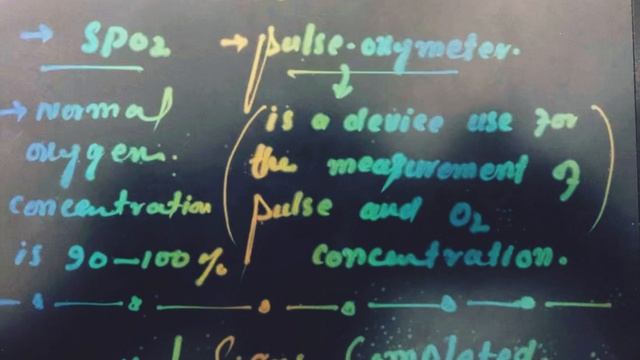 → SPO2
→ Normal
oxygen.
concentration
is 90-100%
→ pulse-oxymeter.
(is a device use for
the measurement of
pulse and O2
concentration.)
Completed